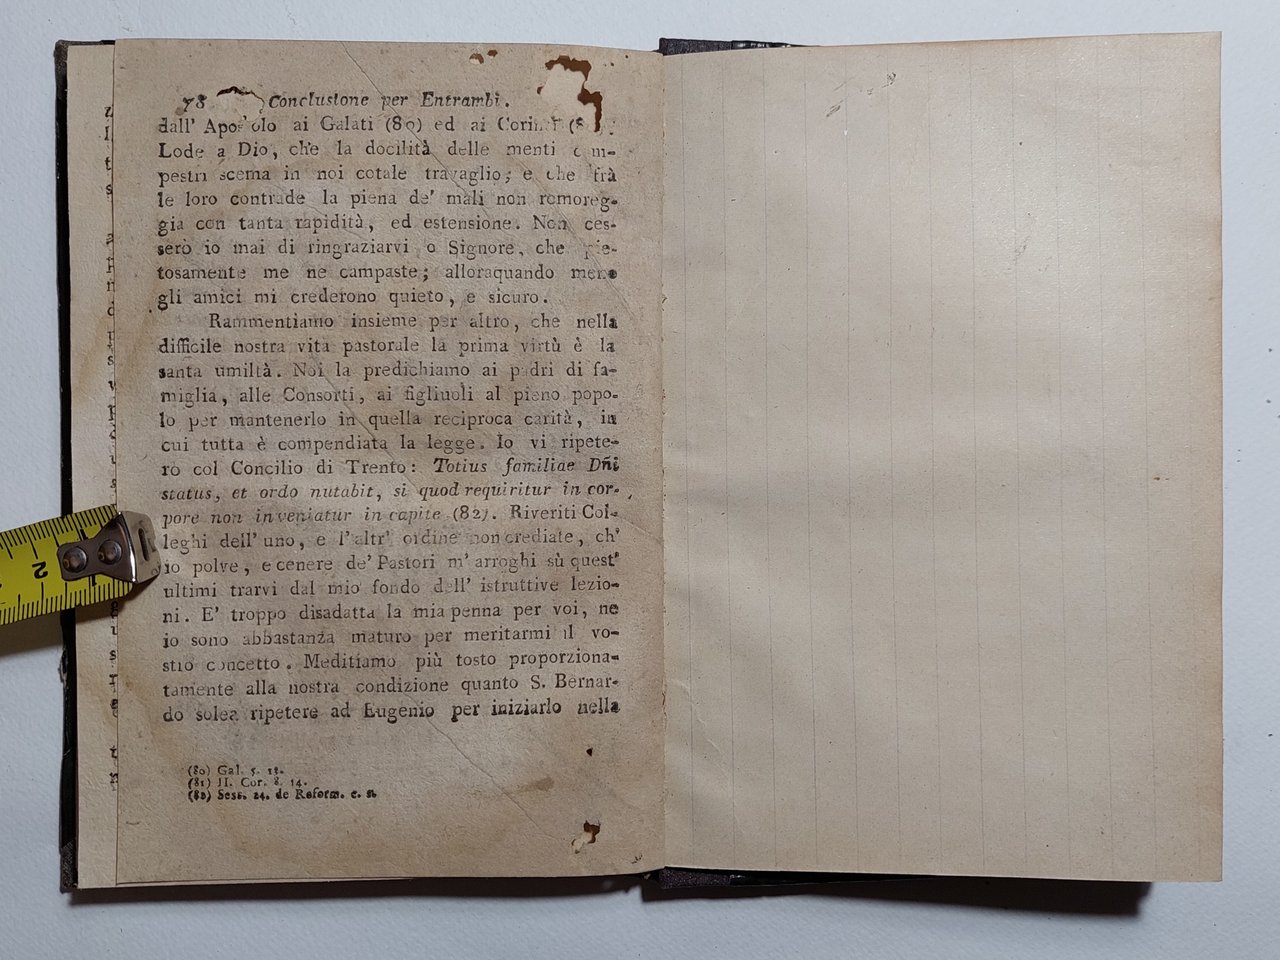 78 Conclusione per Entrambi.
dall' Apostolo ai Galati (80) ed ai
Lode a Dio, che la docilità delle menti cam-
pestri scema in noi cotale travaglio; e che frà
le loro contrade la piena de' mali non romoreg-
gia con tanta rapidità, ed estensione. Non ces-
serò io mai di ringraziarvi o Signore, che pie-
tosamente me ne campaste; alloraquando meno
gli amici mi crederono quieto, e sicuro.
Rammentiamo insieme per altro, che nella
difficile nostra vita pastorale la prima virtù è la
santa umiltà. Noi la predichiamo ai padri di fa-
miglia, alle Consorti, ai figliuoli al pieno popo-
lo per mantenerlo in quella reciproca carità, in
cui tutta è compendiata la legge. Io vi ripete-
rò col Concilio di Trento: Totius familiae Dñi
status, et ordo nutabit, si quod requiritur in cor-
pore non inveniatur in capite (82). Riveriti Col-
leghi dell' uno, e l'altr' ordine non crediate, ch'
io polve, e cenere de' Pastori m' arroghi sù quest'
ultimi trarvi dal mio fondo dell' istruttive lezio-
ni. E' troppo disadatta la mia penna per voi, ne
io sono abbastanza maturo per meritarmi il vo-
stro concetto. Meditiamo più tosto proporziona-
tamente alla nostra condizione quanto S. Bernar-
do solea ripetere ad Eugenio per iniziarlo nella
(80) Gal. 5.
(81) II. Cor. 8. 14.
(82) Sess. 24. de Reform. c.
2
1